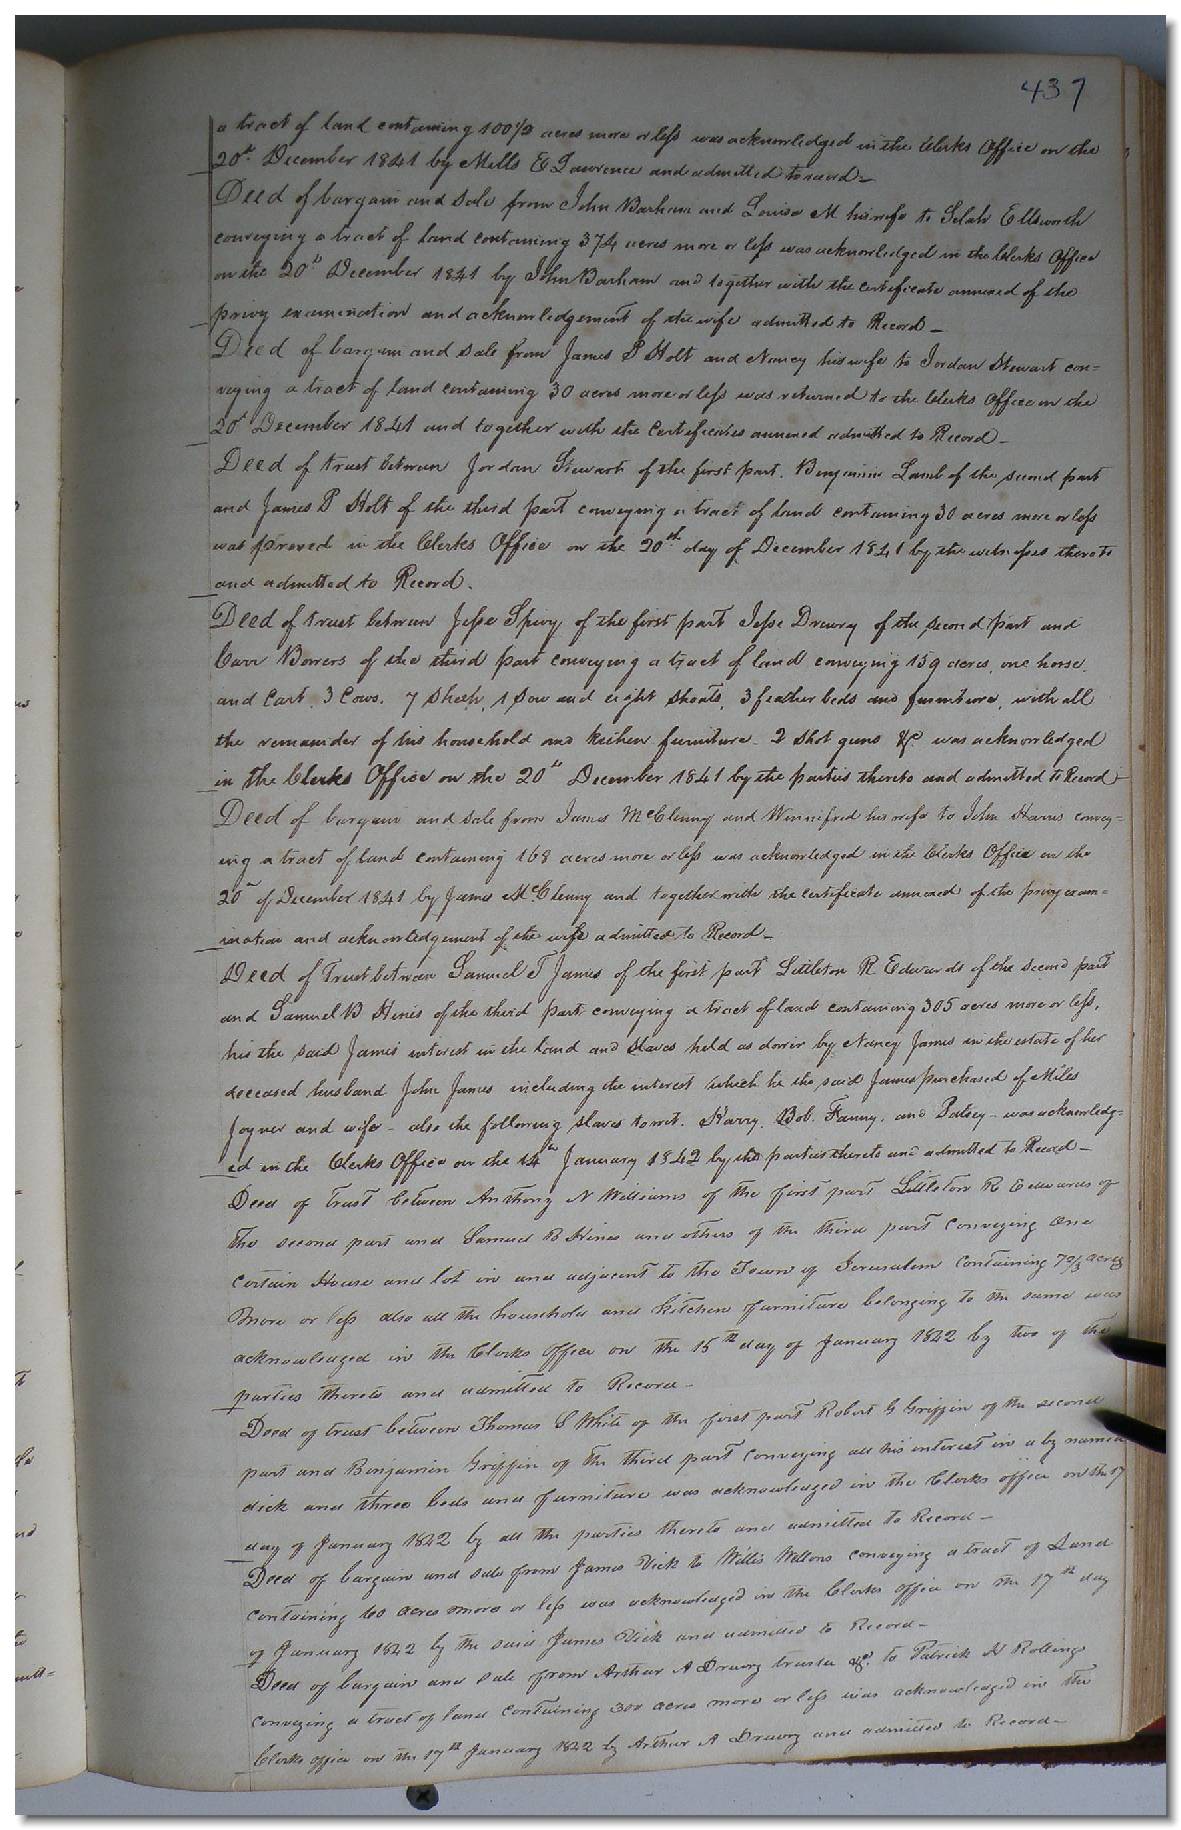 437
a tract of land containing 100½ acres more or less was acknowledged in the Clerks Office on the
20th December 1841 by Mills E Lawrence and admitted to record –
Deed of bargain and sale from John Barham and Louisa M his wife to Selah Ellsworth
conveying a tract of land containing 374 acres more or less was acknowledged in the Clerks Office
on the 20th December 1841 by John Barham and together with the certificate annexed of the
privy examination and acknowledgement of the wife admitted to Record –
Deed of bargain and sale from James P Holt and Nancy his wife to Jordan Stewart con=
veying a tract of land containing 30 acres more or less was returned to the Clerks Office on the
20th December 1841 and together with the Certificates annexed admitted to Record –
Deed of trust between Jordan Stewart of the first part. Benjamin Lamb of the second part
and James P Holt of the third part conveying a tract of land containing 30 acres more or less
was proved in the Clerks Office on the 20th day of December 1841 by the witnesses thereto
and admitted to Record.
Deed of trust between Jesse Spivy of the first part Jesse Drewry of the second part and
Carr Bowers of the third part conveying a tract of land conveying 159 acres, one horse,
and Cart, 3 Cows, 7 Sheep, 1 Sow and eight shoats, 3 feather beds and furniture, with all
the remainder of his household and kichen furniture – 2 Shot guns &c was acknowledged
in the Clerks Office on the 20th December 1841 by the parties thereto and admitted to Record –
Deed of bargain and sale from James McClenny and Winnifred his wife to John Harris convey=
ing a tract of land containing 168 acres more or less was acknowledged in the Clerks Office on the
20th of December 1841 by James McClenny and together with the certificate annexed of the privy exam=
ination and acknowledgement of the wife admitted to Record –
Deed of Trust between Samuel T James of the first part Littleton R Edwards of the second part
and Samuel B Hines of the third part conveying a tract of land containing 305 acres more or less,
his the said James interest in the land and slaves held as dower by Nancy James in the estate of her
deceased husband John James including the interest which he the said James purchased of Miles
Joyner and wife – also the following slaves to wit. Harry, Bob, Fanny, and Patsey – was acknowledg=
ed in the Clerks Office on the 14th January 1842 by the parties thereto and admitted to Record –
Deed of Trust between Anthony N Williams of the first part Littleton R Edwards of
the second part and Samuel B Hines and others of the third part conveying one
certain House and lot in and adjacent to the Town of Jerusalem containing acres
more or less also all the household and kitchen furniture belonging to the same was
acknowledged in the Clerks office on the 15th day of January 1842 by two of the
parties thereto and admitted to Record –
Deed of trust between Thomas S White of the first part Robert G Griffin of the second
part and Benjamin Griffin of the third part conveying all his interest in a boy named
dick and three beds and furniture was acknowledged in the Clerks office on the 17
day of January 1842 by all the parties thereto and admitted to Record –
Deed of bargain and sale from James Vick to Willis Wellons conveying a tract of Land
containing 60 acres more or less was acknowledged in the Clerks office on the 17th day
of January 1842 by the said James Vick and admitted to Record –
Deed of bargain and sale from Arthur A Drewry trustee &c. to Patrick H Rollings
conveying a tract of land containing 300 acres more or less was acknowledged in the
Clerks office on the 17th January 1842 by Arthur A Drewry and admitted to Record –